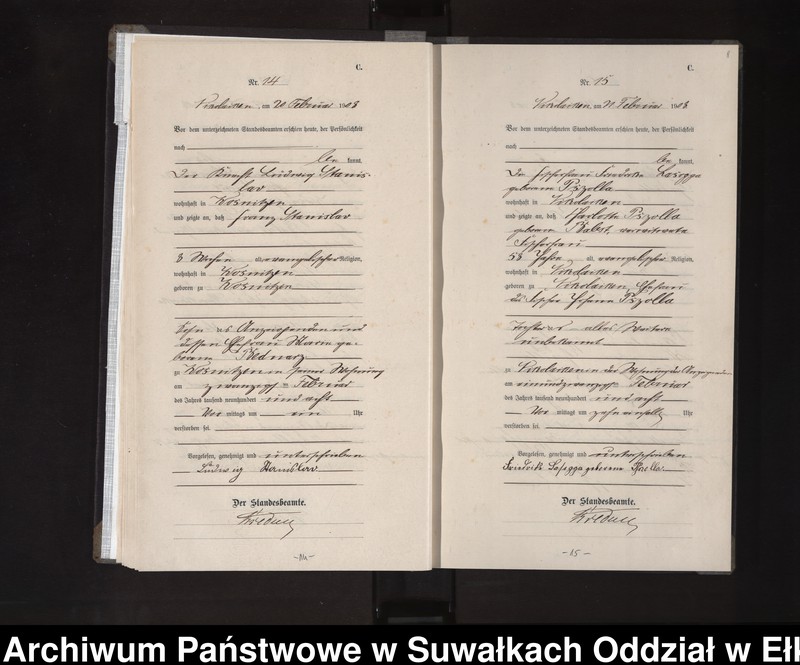 C.
Nr. 14
am 20 Februar 1908
Vor dem unterzeichneten Standesbeamten erschien heute, der Persönlichkeit
nach
be kannt,
Der Ludwig Stanis-
lav
wohnhaft in Kosnitzen
und zeigte an, daß Franz Stanislav
3 Wochen alt, evangelischer Religion,
wohnhaft in Kosnitzen
geboren zu Kosnitzen
Sohn des Anzeigenden und
dessen Ehefrau Marie ge-
borene Bednarz
zu Kosnitzen in seiner Wohnung
am zwanzigsten Februar
des Jahres tausend neunhundert und acht
Vor mittags um ein Uhr
verstorben sei.
Vorgelesen, genehmigt und unterschrieben
Ludwig Stanislav
Der Standesbeamte.
-14-
C.
Nr. 15
am Februar 1908
Vor dem unterzeichneten Standesbeamten erschien heute, der Persönlichkeit
nach
be kannt,
Die
geborene Pszolla
wohnhaft in
und zeigte an, daß Charlotte Pszolla
geborene Babst, verwitwete
Fischerfrau
58 Jahre alt, evangelischer Religion,
wohnhaft in
geboren zu Ehefrau
des Fischer Johann Pszolla
Tochter des alles Weitere
unbekannt
zu in der Wohnung der Anzeigenden
am einundzwanzigsten Februar
des Jahres tausend neunhundert und acht
Vor mittags um zehn einhalb Uhr
verstorben sei.
Vorgelesen, genehmigt und unterschrieben
geborene
Der Standesbeamte.
-15-
Archiwum Państwowe w Suwałkach Oddział w Ełk